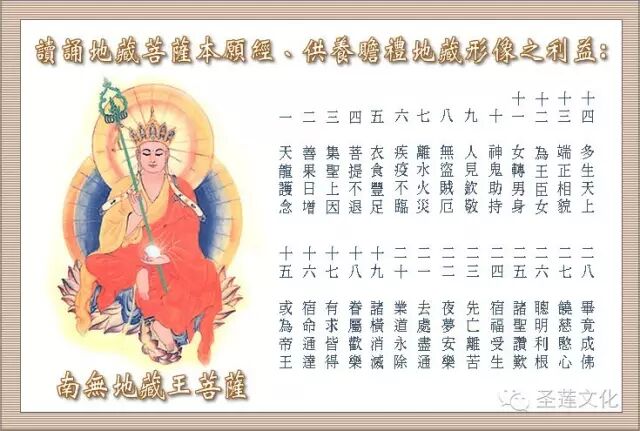 讀誦地藏菩薩本願經、供養瞻禮地藏形像之利益:
一 天龍護念
二 善果日增
三 集聖上因
四 菩提不退
五 衣食豐足
六 疾疫不臨
七 離水火災
八 無盜賊厄
九 人見欽敬
十 神鬼助持
十一 女轉男身
十二 為王臣女
十三 端正相貌
十四 多生天上
十五 或為帝王
十六 宿命通達
十七 有求皆得
十八 眷屬歡樂
十九 諸橫消滅
二十 業道永除
二一 去處盡通
二二 夜夢安樂
二三 先亡離苦
二四 宿福受生
二五 諸聖讚歎
二六 聰明利根
二七 饒慈愍心
二八 畢竟成佛
南無地藏王菩薩
圣莲文化